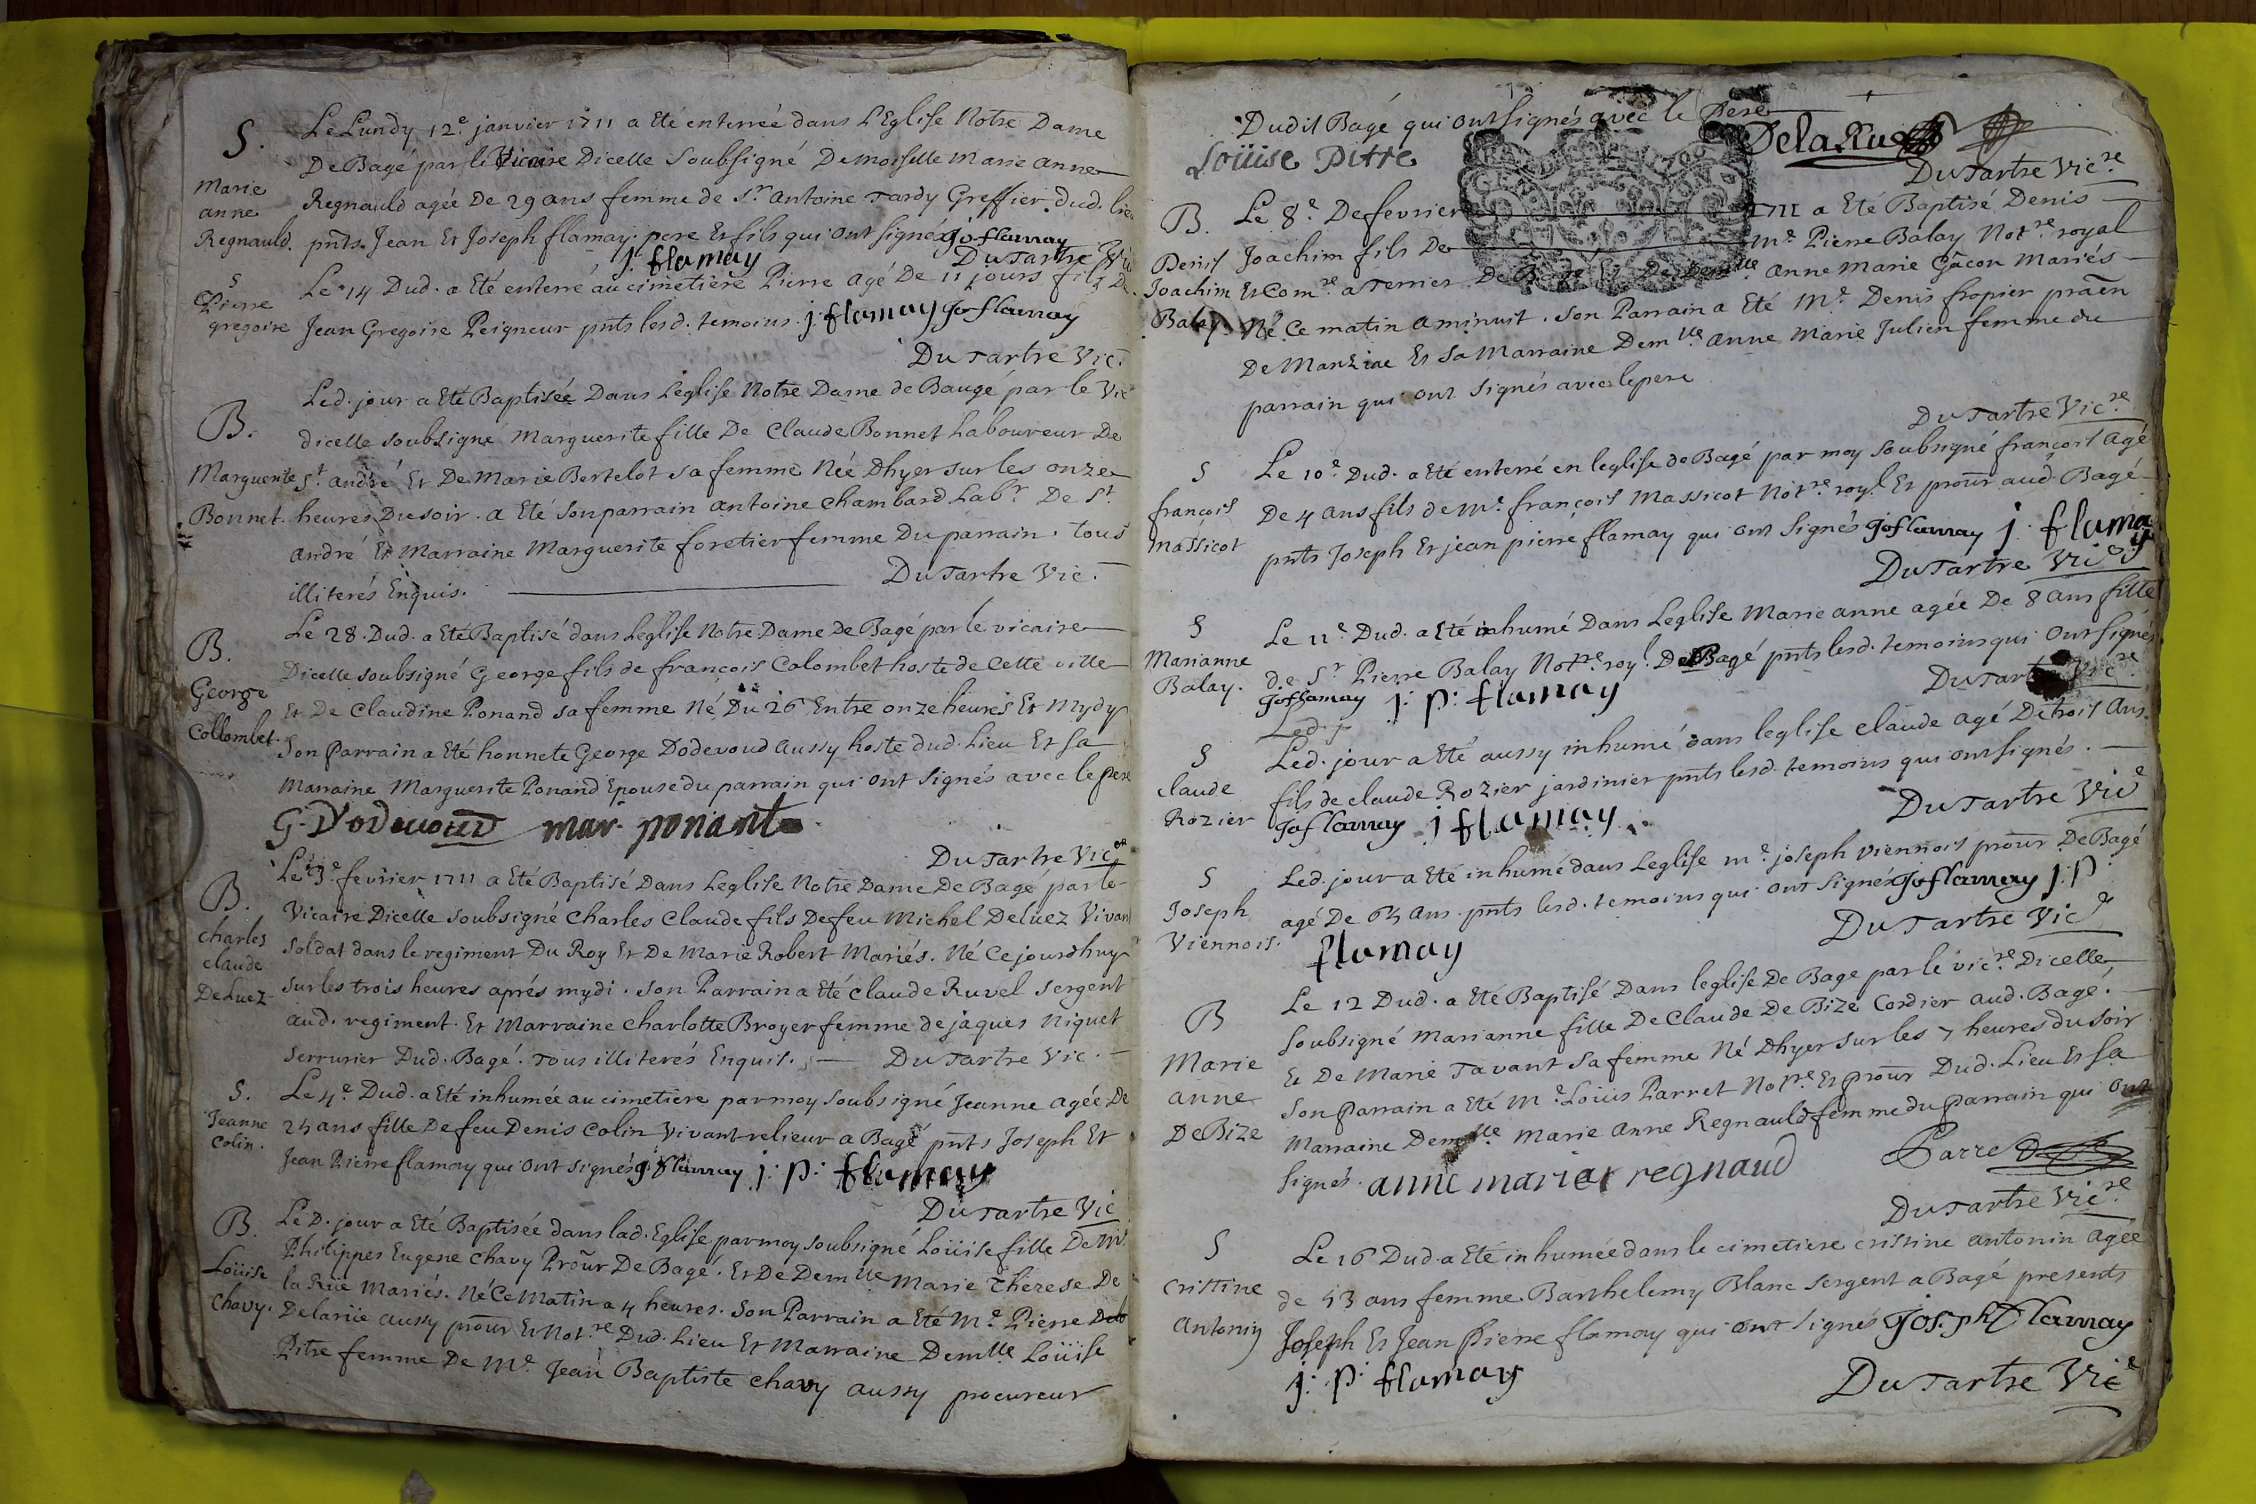 S.
Le Lundy 12e. janvier 1711 a Eté enterrée dans L'Eglise Notre Dame
De Bagé par le Vicaire Dicelle Soubsigné Demoiselle Marie anne
Marie
anne
Regnauld.
Regnauld agée De 29 ans femme de Sr. Antoine Tardy Greffier dud. lieu
pnts. Jean Et Joseph flamay pere Et fils qui ont signés Joflamay
j. flamay Du Tartre Vic
S
Pierre
gregoire
Le 14 Dud. a Eté enterré au cimetiere Pierre agé De 11 jours fils De
Jean Gregoire Peigneur pnts lesd. temoins. j. flamay Joflamay
Du Tartre Vic.
B.
Marguerite
Bonnet.
Led. jour a Eté Baptisée Dans Leglise Notre Dame de Baugé par le Vic
dicelle soubsigné Marguerite fille De Claude Bonnet Laboureur De
St. andré Et De Marie Bertelot sa femme Née Dhyer sur les onze
heures Du soir. a Eté son parrain antoine Chambard Labr. De St.
andré Et Marraine Marguerite foretier femme Du parrain. Tous
illiterés Enquis. Du Tartre Vic.
B.
George
Collombet.
Le 28. Dud. a Eté Baptisé dans Leglise Notre Dame De Bagé par le vicaire
Dicelle soubsigné George fils de françois Colombet hoste de Cette ville
Et De Claudine Ponand sa femme Né Du 26 Entre onze heures Et Mydy
Son Parrain a Eté honnete George Dodevoud aussy hoste dud. Lieu Et sa
Marraine Marguerite Ponand Epouse du parrain qui ont signés avec le pere
G. Dodevoud mar. ponant
Du Tartre Vicre
B.
Charles
claude
DeLuez
Le 3e. fevrier 1711 a Eté Baptisé Dans Leglise Notre Dame De Bagé par le
Vicaire Dicelle soubsigné Charles Claude fils De feu Michel Deluez Vivant
soldat dans le regiment Du Roy Et De Marie Robert Mariés. Né Cejourdhuy
sur les trois heures aprés mydi. son Parrain a Eté Claude Ruvel sergent
aud. regiment. Et Marraine Charlotte Broyer femme de jaques Niquet
serrurier Dud. Bagé. Tous illiterés Enquis. Du Tartre Vic.
S.
Jeanne
Colin.
Le 4e. Dud. a Eté inhumée au cimetiere par moy soubsigné Jeanne agée De
25 ans fille De feu Denis Colin Vivant relieur a Bagé pnts Joseph Et
Jean Pierre flamay qui ont signés Joflamay j. p. flamay
Du Tartre Vic
B.
Loüise
Chavy.
Le D. jour a Eté Baptisée dans lad. Eglise par moy soubsigné Loüise fille De Me.
Philippes Eugene Chavy Prour De Bagé. Et De Demlle Marie Therese De
la Rüe Mariés. Né Ce Matin a 4 heures. Son Parrain a Eté Me. Pierre
Delarüe aussy prour Et Notre Dud. Lieu Et Marraine Demlle Loüise
Pitre femme De Me. Jean Baptiste Chavy aussy procureur
Dudit Bagé qui ont signés avec le Pere
Loüise Pitre DelaRue
Du Tartre Vicre
B.
Denis
Joachim
Balay.
Le 8e. De fevrier 1711 a Eté Baptisé Denis
Joachim fils De Me. Pierre Balay Notre royal
Et Comre a Terrier De Bagé Et De Demlle anne Marie Gacon Mariés
Né Ce matin a minuit. son Parrain a Eté Me. Denis fropier praēn
De Manziac Et sa Marraine Demlle anne Marie Julien femme du
parrain qui ont signés avec le pere
Du Tartre Vicre
S
françois
Massicot
Le 10e. Dud. a Eté enterré en leglise de Bagé par moy soubsigné françois agé
De 4 ans fils de Me. françois Massicot Notre royl. Et prour aud. Bagé
pnts Joseph Et jean pierre flamay qui ont signés Joflamay j. flamay
Du Tartre Vic
S
Marianne
Balay.
Le 11e. Dud. a Eté inhumé Dans Leglise Marie anne agée De 8 ans fille
de Sr Pierre Balay Notre royl. De Bagé pnts lesd. temoins qui ont signés
Joflamay j. p. flamay Du Tartre Vicre
Led. j
S
Claude
Rozier
Led. jour a Eté aussy inhumé dans leglise Claude agé De trois ans.
fils de claude Rozier jardinier pnts lesd. temoins qui ont signés.
Joflamay j flamay Du Tartre Vic
S
Joseph
Viennois.
Led. jour a Eté inhumé dans Leglise me. joseph Viennois prour De Bagé
agé De 65 ans. pnts lesd. temoins qui ont signés Joflamay j. p.
flamay Du Tartre Vic
B
Marie
anne
DeBize
Le 12 Dud. a Eté Baptisé Dans leglise De Bage par le vicre Dicelle
soubsigné Marianne fille De Claude De Bize Cordier aud. Bagé.
Et De Marie Tavant sa femme Né Dhyer sur les 7 heures du soir
Son Parrain a Eté Me. Loüis Parret Notre Et prour Dud. Lieu Et sa
Marraine Demlle Marie Anne Regnauld femme du parrain qui ont
signés. anne mariee regnaud Parret
Du Tartre Vicre
S
Cristine
Antonin
Le 16 Dud. a Eté inhumée dans le cimetiere Cristine Antonin agée
de 53 ans femme Barthelemy Blanc sergent a Bagé presents
Joseph Et Jean Pierre flamay qui ont signés Joseph flamay
j. p. flamay Du Tartre Vic